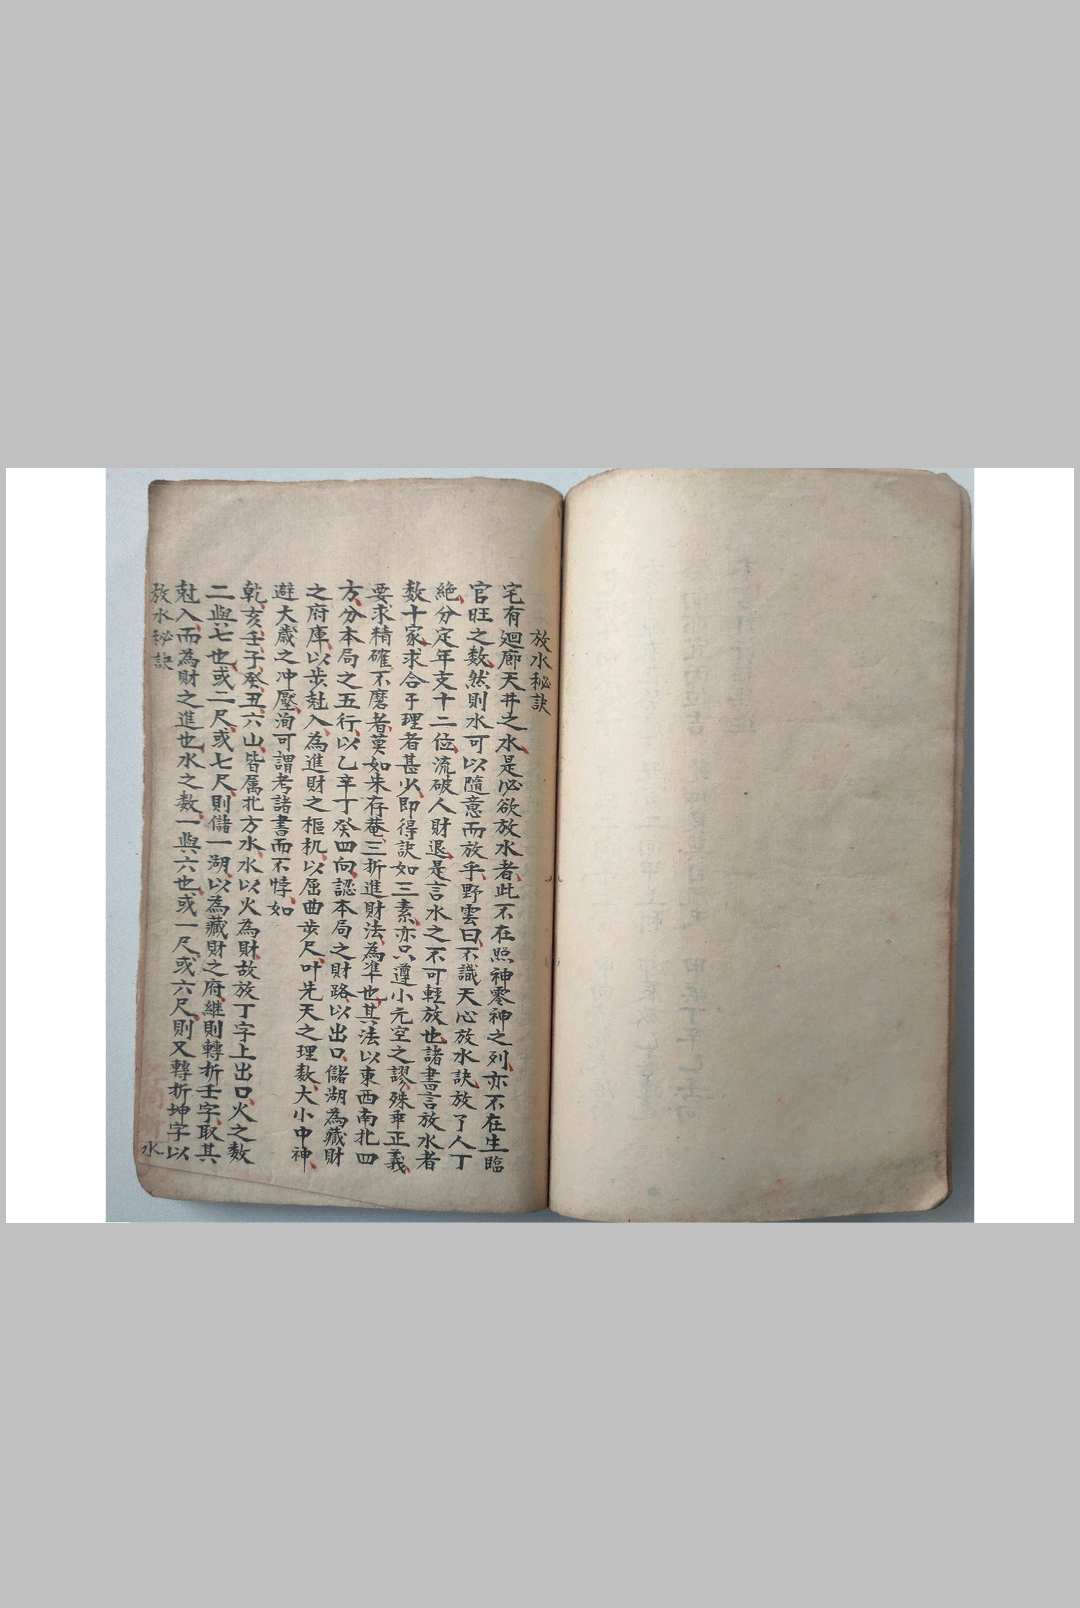 放水秘訣
宅有廻廊天井之水是必欲放水者此不在照神零神之列亦不在生臨
官旺之数然則水可以隨意而放乎野雲曰不識天心放水訣放了人丁
絶分定年支十二位流破人財退是言水之不可輕放也諸書言放水者
数十家求合于理者甚少即得訣如三素亦只遵小元空之謬殊乖正義
要求精確不磨者莫如朱存菴三折進財法為準也其法以東西南北四
方分本局之五行以乙辛丁癸四向認本局之財路以出口儲湖為藏財
之府庫以步尅入為進財之樞机以屈曲步尺叶先天之理数大小中神
避大歲之冲壓洵可謂考諸書而不悖如
乾亥壬子癸丑六山皆属北方水水以火為財故放丁字上出口火之数
二與七也或二尺或七尺則儲一湖以為藏財之府継則轉折壬字取其
尅入而為財之進也水之数一與六也或一尺或六尺則又轉折坤字以
放水秘訣
水